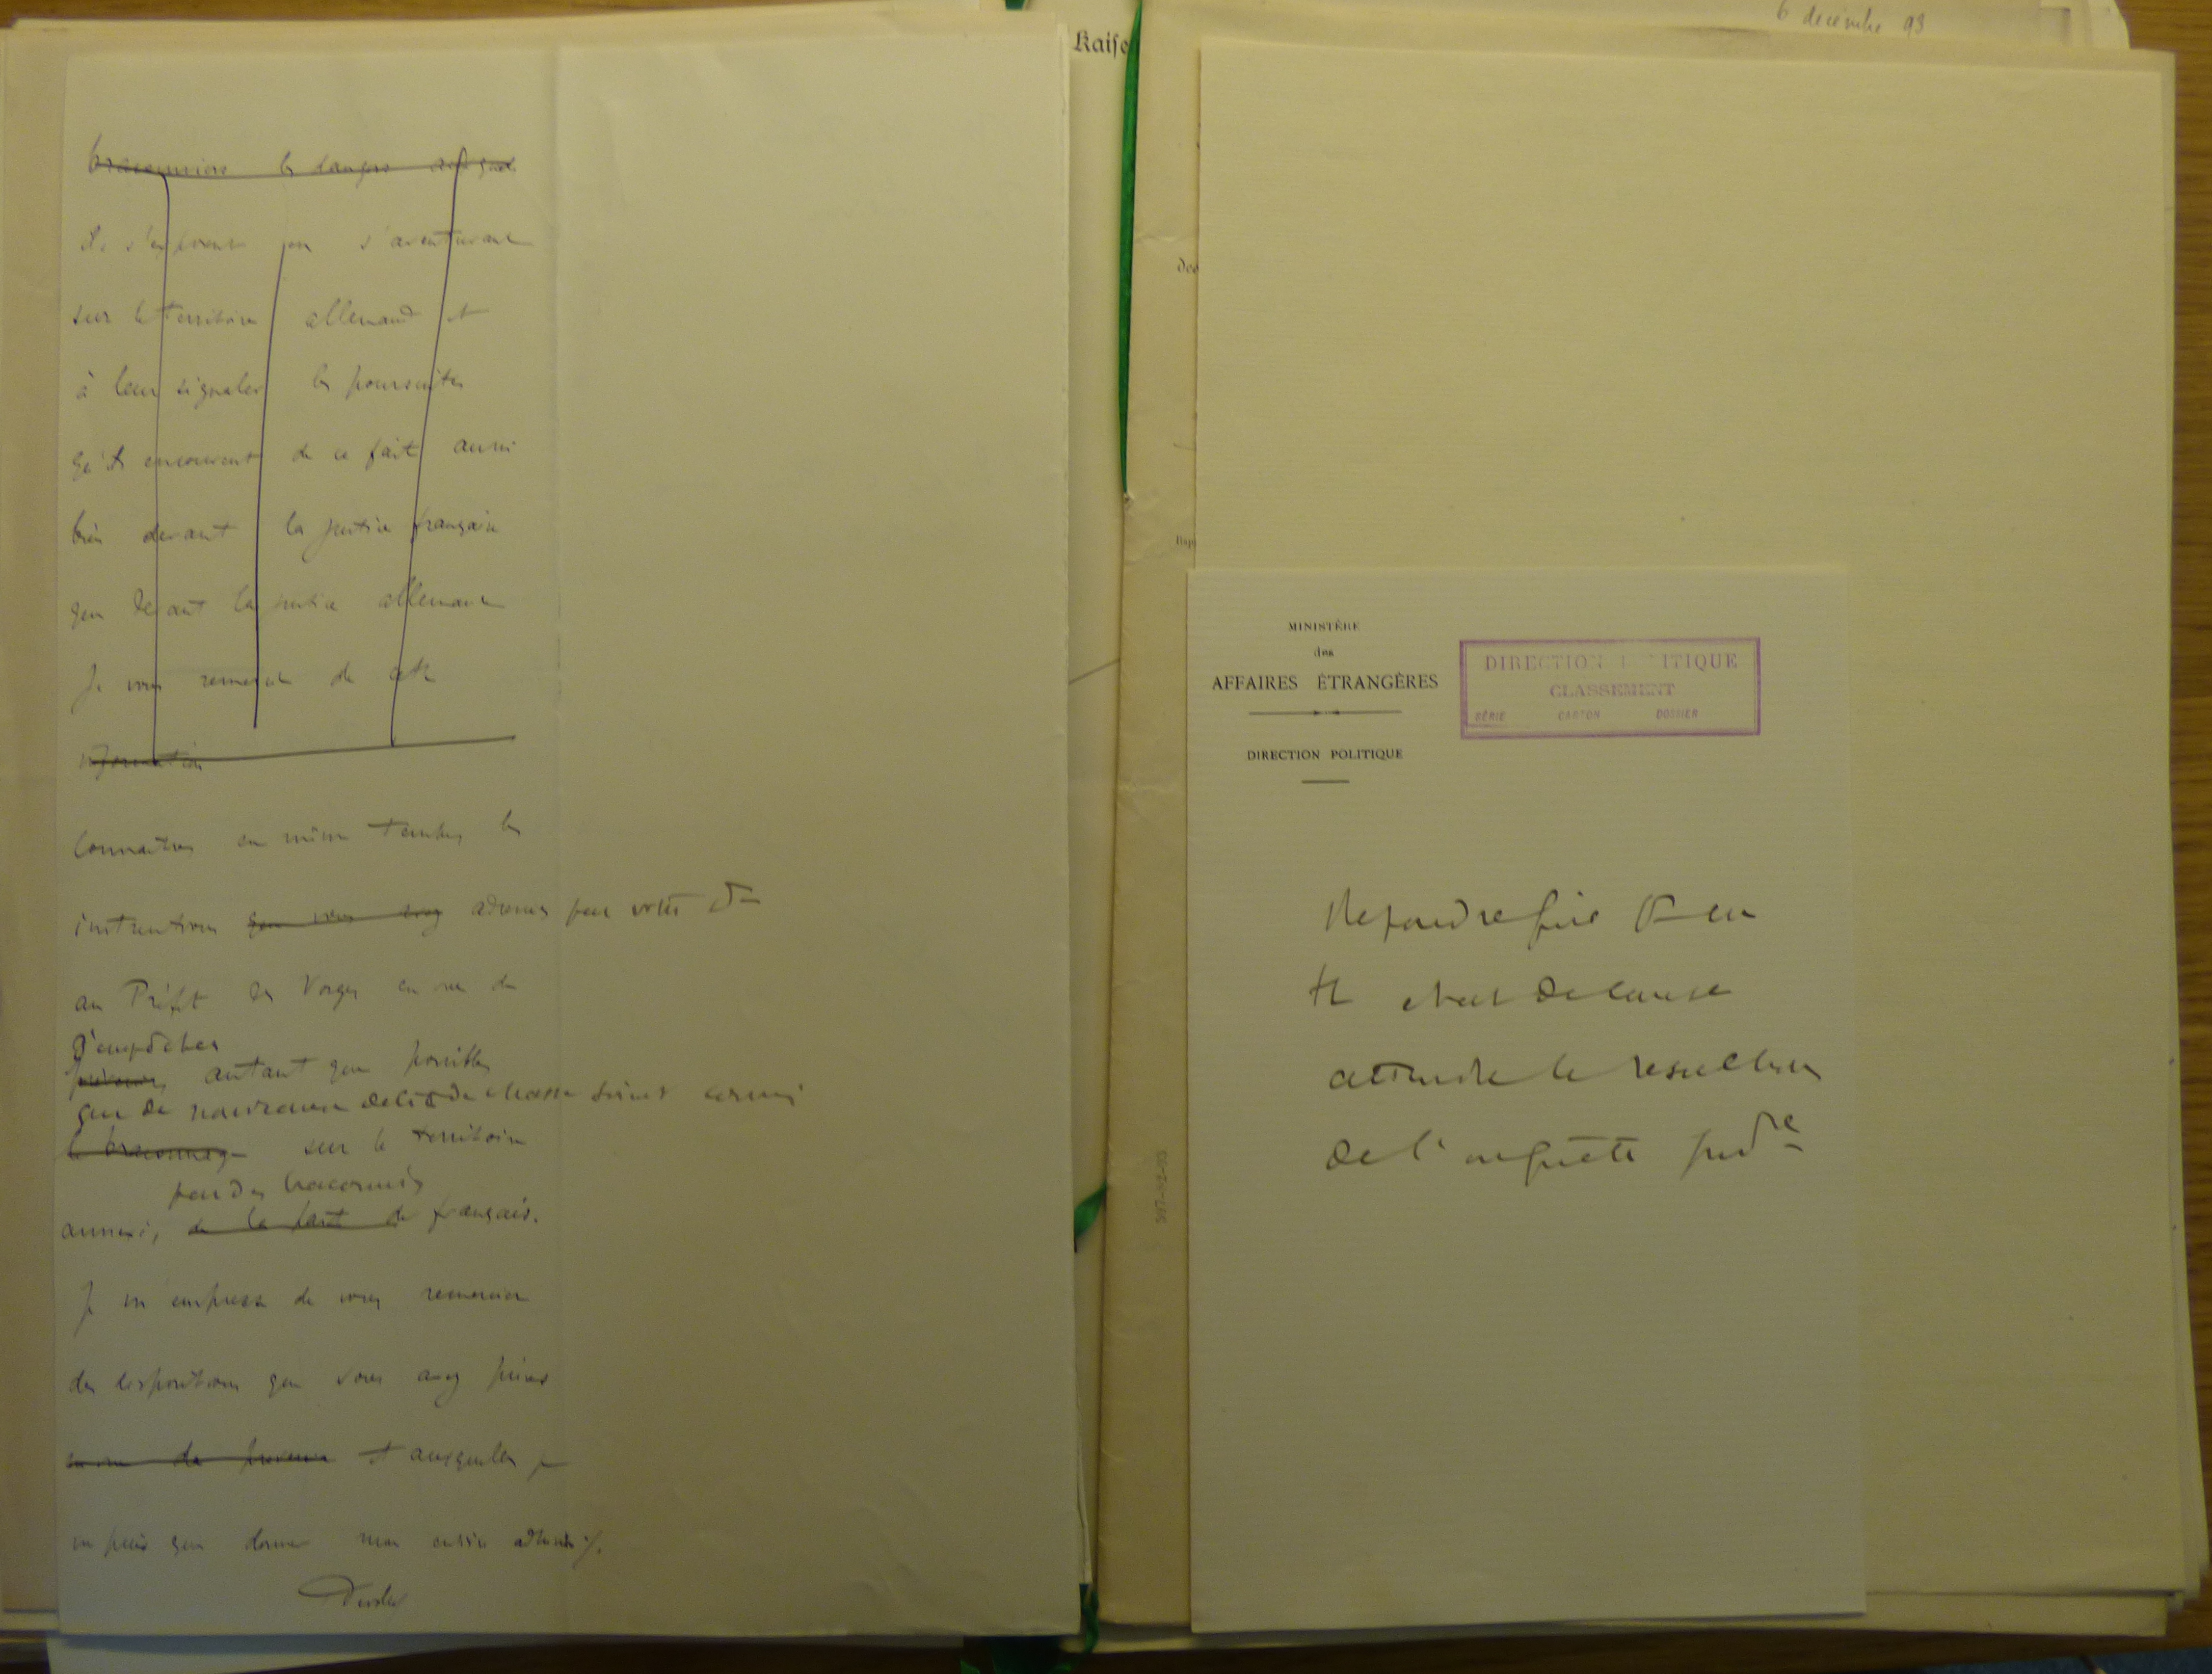 braconniers les dangers auxquels
ils s'exposent en s'aventurant
sur le territoire allemand et
à leur signaler les poursuites
qu'ils encourent de ce fait aussi
bien devant la justice française
que devant la justice allemande
Je vous remercie de cette
information
connaitre en même temps les
instructions que vous avez adressées par votre
au Préfet des Vosges en vue de
d'empêcher
prévenir, autant que possible
que de nouveaux délits de chasse soient commis
le braconnage sur le territoire
par des braconniers
annexé, de la part de français.
Je m'empresse de vous remercier
des dispositions que vous avez prises
en vue de prévenir et auxquelles je
ne puis que donner mon entière adhésion ./.
Kaise
6 décembre 93
MINISTÈRE
des
AFFAIRES ÉTRANGÈRES
DIRECTION POLITIQUE
DIRECTION POLITIQUE
CLASSEMENT
SÉRIE CARTON DOSSIER
Répondre que
état de cause
attendre le résultat
de l'enquête judre